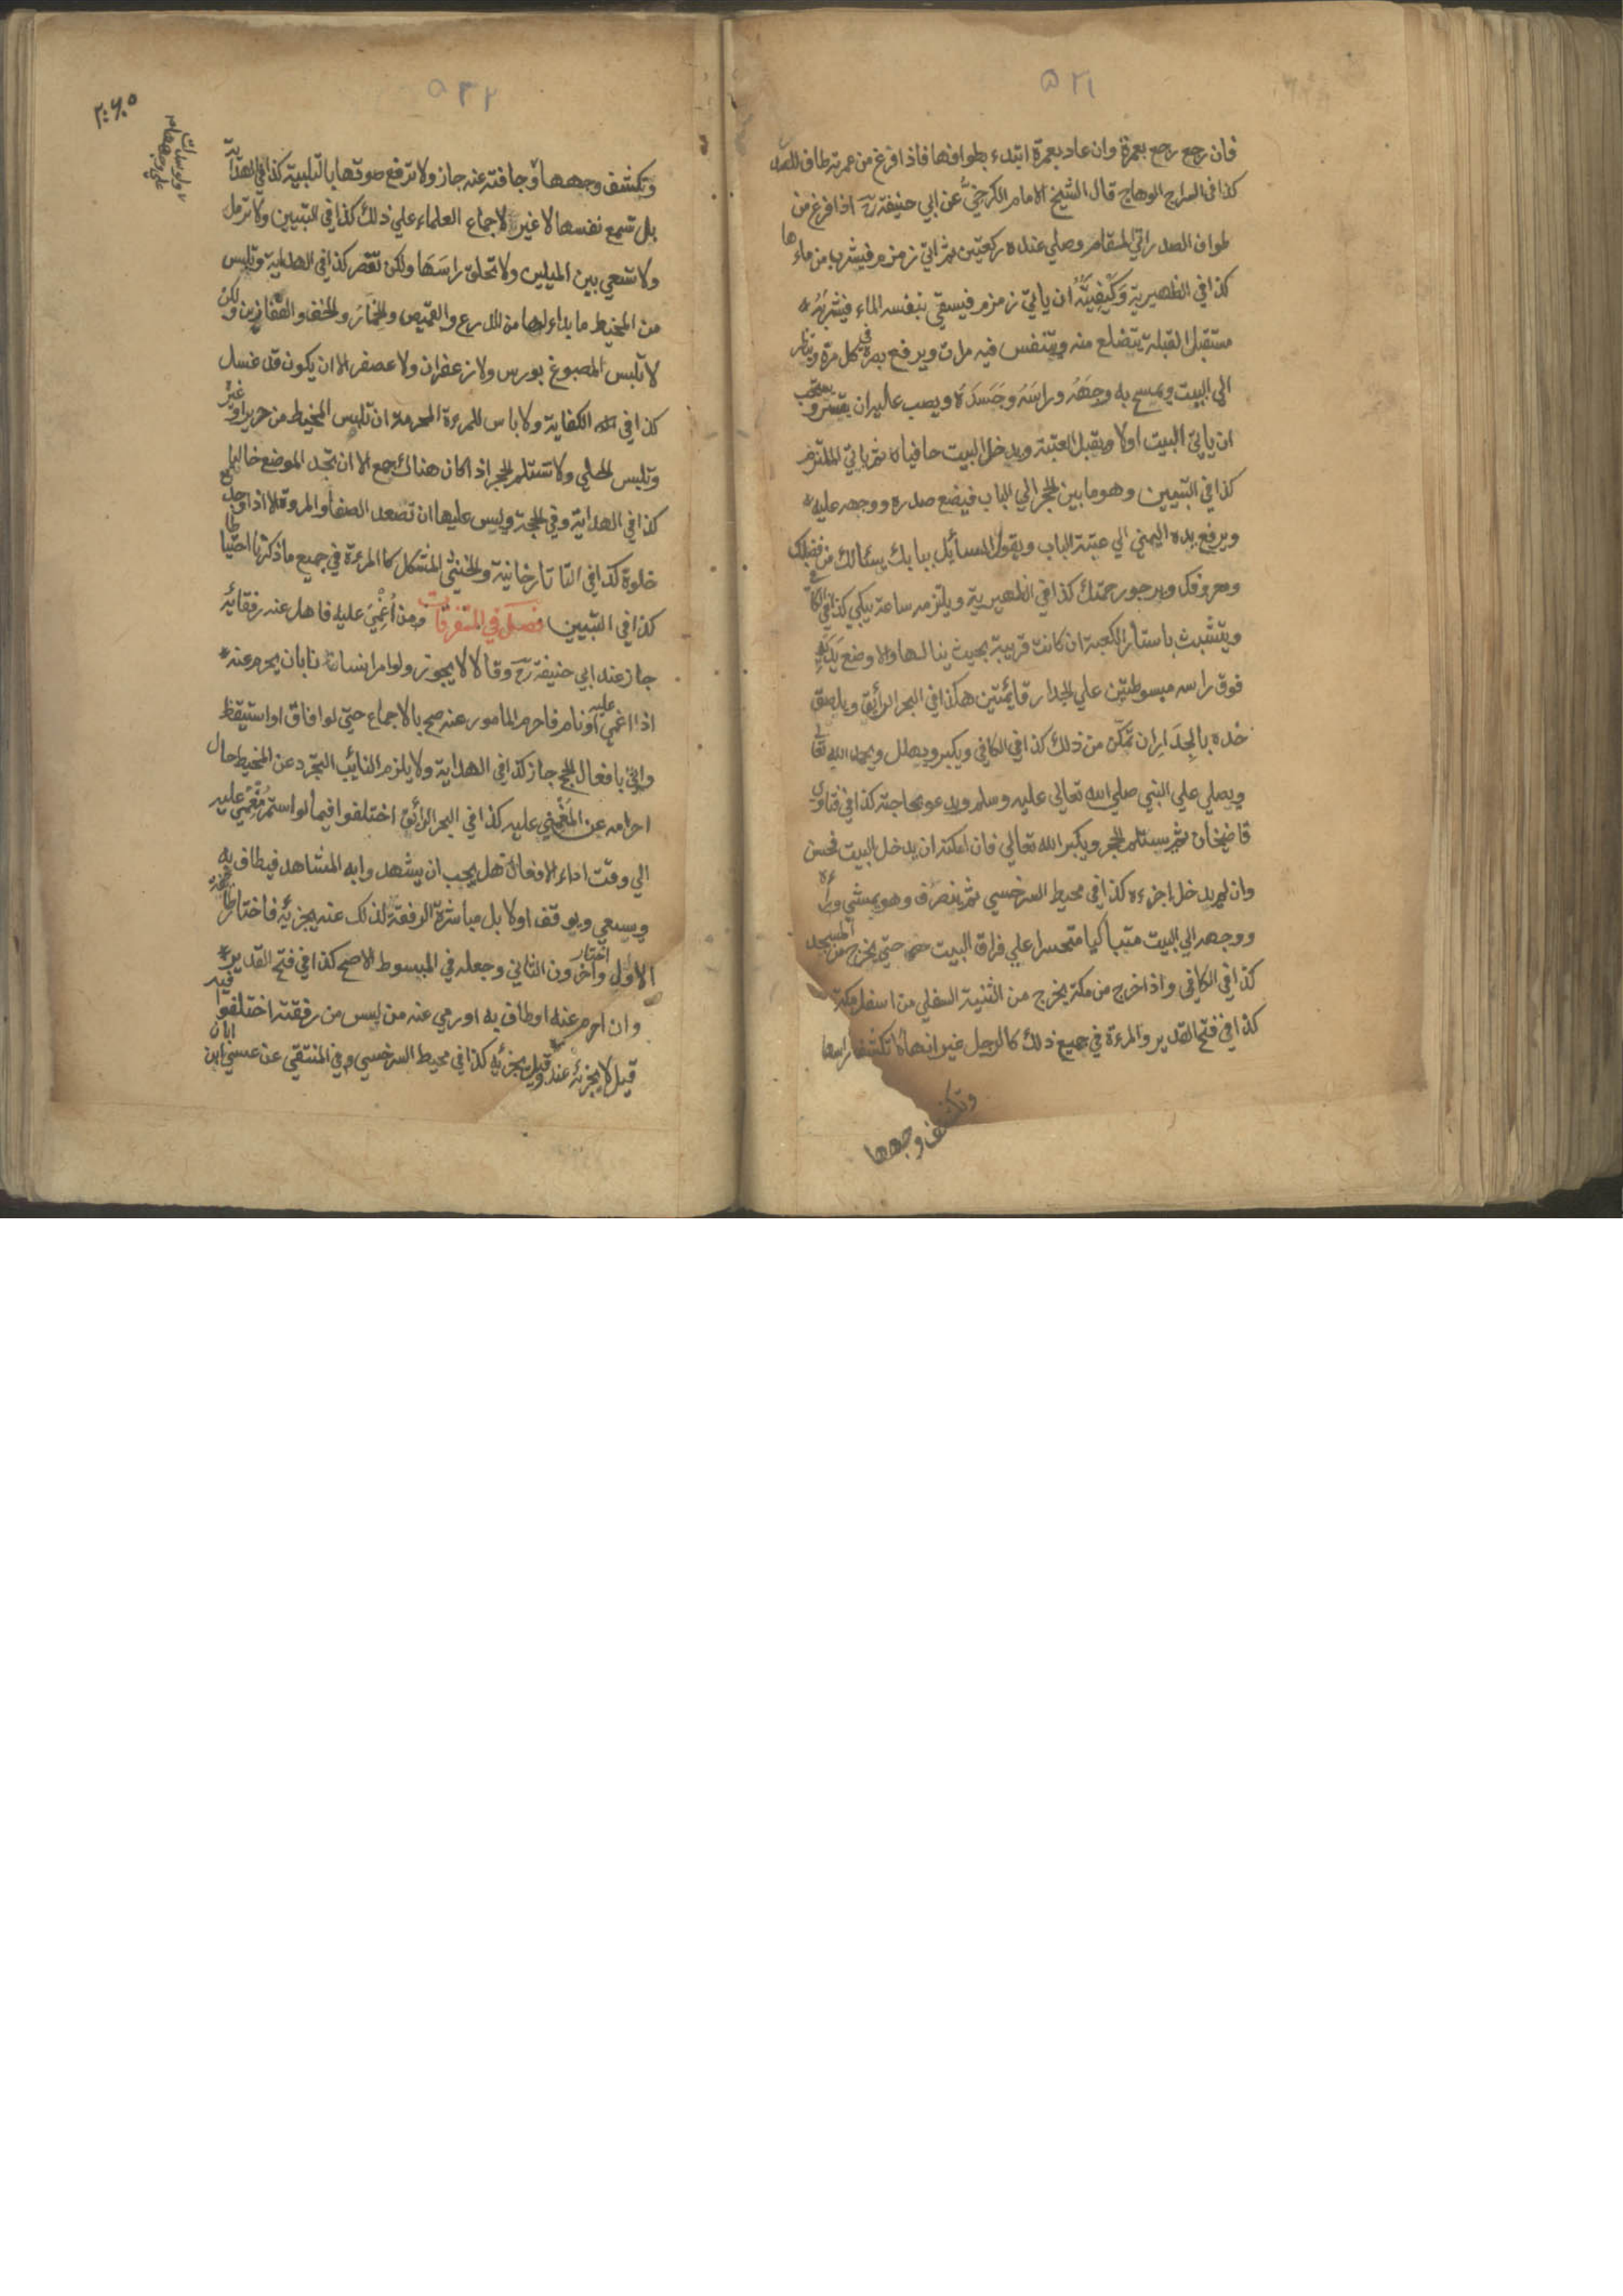 ٥٢١
فان رجع رجع بعمرة وان عاد بعمرة ابتدء بطوافها فاذا فرغ من عمرته طاف للصدر
كذا في السراج الوهاج قال الشيخ الامام الكرخيّ عن ابي حنيفة رح اذا فرغ من
طواف الصدر اتي المقام وصلي عنده ركعتين ثم اتي زمزم فيشرب من ماءها
كذا في الظهيرية وَكَيْفِيَّتُهُ ان ياتي زمزم فيستقي بنفسه الماء فيشربُهُ
مستقبل القبلة يتضلع منه ويتنفس فيه مرات ويرفع بصره في كل مرة وينظر
الي البيت ويمسح به وجهَهُ وراسَهُ وَجَسَدَهُ ويصب عليه ان تيسر ويستحب
ان ياتي البيت اولا ويقبل العتبة ويدخل البيت حافيا ثم ياتي الملتزم
كذا في التبيين وهو ما بين الحجر الي الباب فيضع صدره ووجهه عليه
ويرفع يده اليمني الي عتبة الباب ويقول السائل ببابك يسئالك من فضلك
ومعروفك ويرجو رحمتك كذا في الظهيرية ويلتزمه ساعة يبكي كذا في الكافي
ويتشبث باستار الكعبة ان كانت قريبة بحيث ينالها والا وضع يَدَيْهِ
فوق راسه مبسوطتين علي الجدار قائمتين هكذا في البحر الرائق ويلصق
خده بالجِدَارِ ان تمكّن من ذلك كذا في الكافي ويكبر ويهلل ويحمد الله تعالي
ويصلي علي النبي صلي الله تعالي عليه وسلم ويدعو بحاجته كذا في فتاوي
قاضيخان ثم يستلم الحجر ويكبر الله تعالي فان امكنه ان يدخل البيت فحسن
وان لم يدخل اجزءه كذا في محيط السرخسي ثم ينصرف وهو يمشي وراءه
ووجهه الي البيت متباكيا متحسرا علي فراق البيت حتي يخرج من المسجد
كذا في الكافي واذا خرج من مكة يخرج من الثنية السفلي من اسفل مكة
كذا في فتح القدير والمرءة في جميع ذلك كالرجل غير انها لا تكشف راسها
وتكشف وجهها
٥٢٢
وتكشف وجهها وجافته عنه جاز ولا ترفع صوتها بالتلبية كذا في الهداية
بل تسمع نفسها لا غير لاجماع العلماء علي ذلك كذا في التبيين ولا ترمل
ولا تسعي بين الميلين ولا تحلق راسَهَا ولكن تقصر كذا في الهداية وتلبس
من المخيط ما بداء لها من الدرع والقميص والخمار والخف والقفازين ولكن
لا تلبس المصبوغ بورس ولا زعفران ولا عصفر الا ان يكون قد غسل
كذا في الكفاية ولا باس للمرءة المحرمة ان تلبس المخيط من حرير او غيره
وتلبس الحلي ولا تستلم الحجر اذا كان هناك جمع الا ان تجد الموضع خاليا
كذا في الهداية وفي الحجة وليس عليها ان تصعد الصفا والمروة الا اذا وجد
خلوة كذا في التاتارخانية والخنثي المشكل كالمرءة في جميع ما ذكرنا احتياطا
كذا في التبيين فصل في المتفرقات ومن أُغْمِيَ عليه فاهل عنه رفقائه
جاز عند ابي حنيفة رح وقالا لا يجوز ولو امر انسانا بان يحرم عنه
اذا اغمي عليه او نام فاحرم المامور عنه صح بالاجماع حتي لو افاق او استيقظ
واتي بافعال الحج جاز كذا في الهداية ولا يلزم النائب التجرد عن المخيط حال
احرامه عن المغمي عليه كذا في البحر الرائق اختلفوا فيما لو استمر مُغمي عليه
الي وقت اداء الافعال هل يجب ان يشهد وابه المشاهد فيطاف به
ويسعي ويوقف اولا بل مباشرة الرفقة لذلك عنه يجزئه فاختار طائفة
الاول واختار اخرون الثاني وجعله في المبسوط الاصح كذا في فتح القدير
وان احرم عنه او طاف به او رمي عنه من ليس من رفقته اختلفوا فيه
قيل لا يجزئه عنده وقيل يجزئه كذا في محيط السرخسي وفي المنتقي عن عيسي ابن ابان